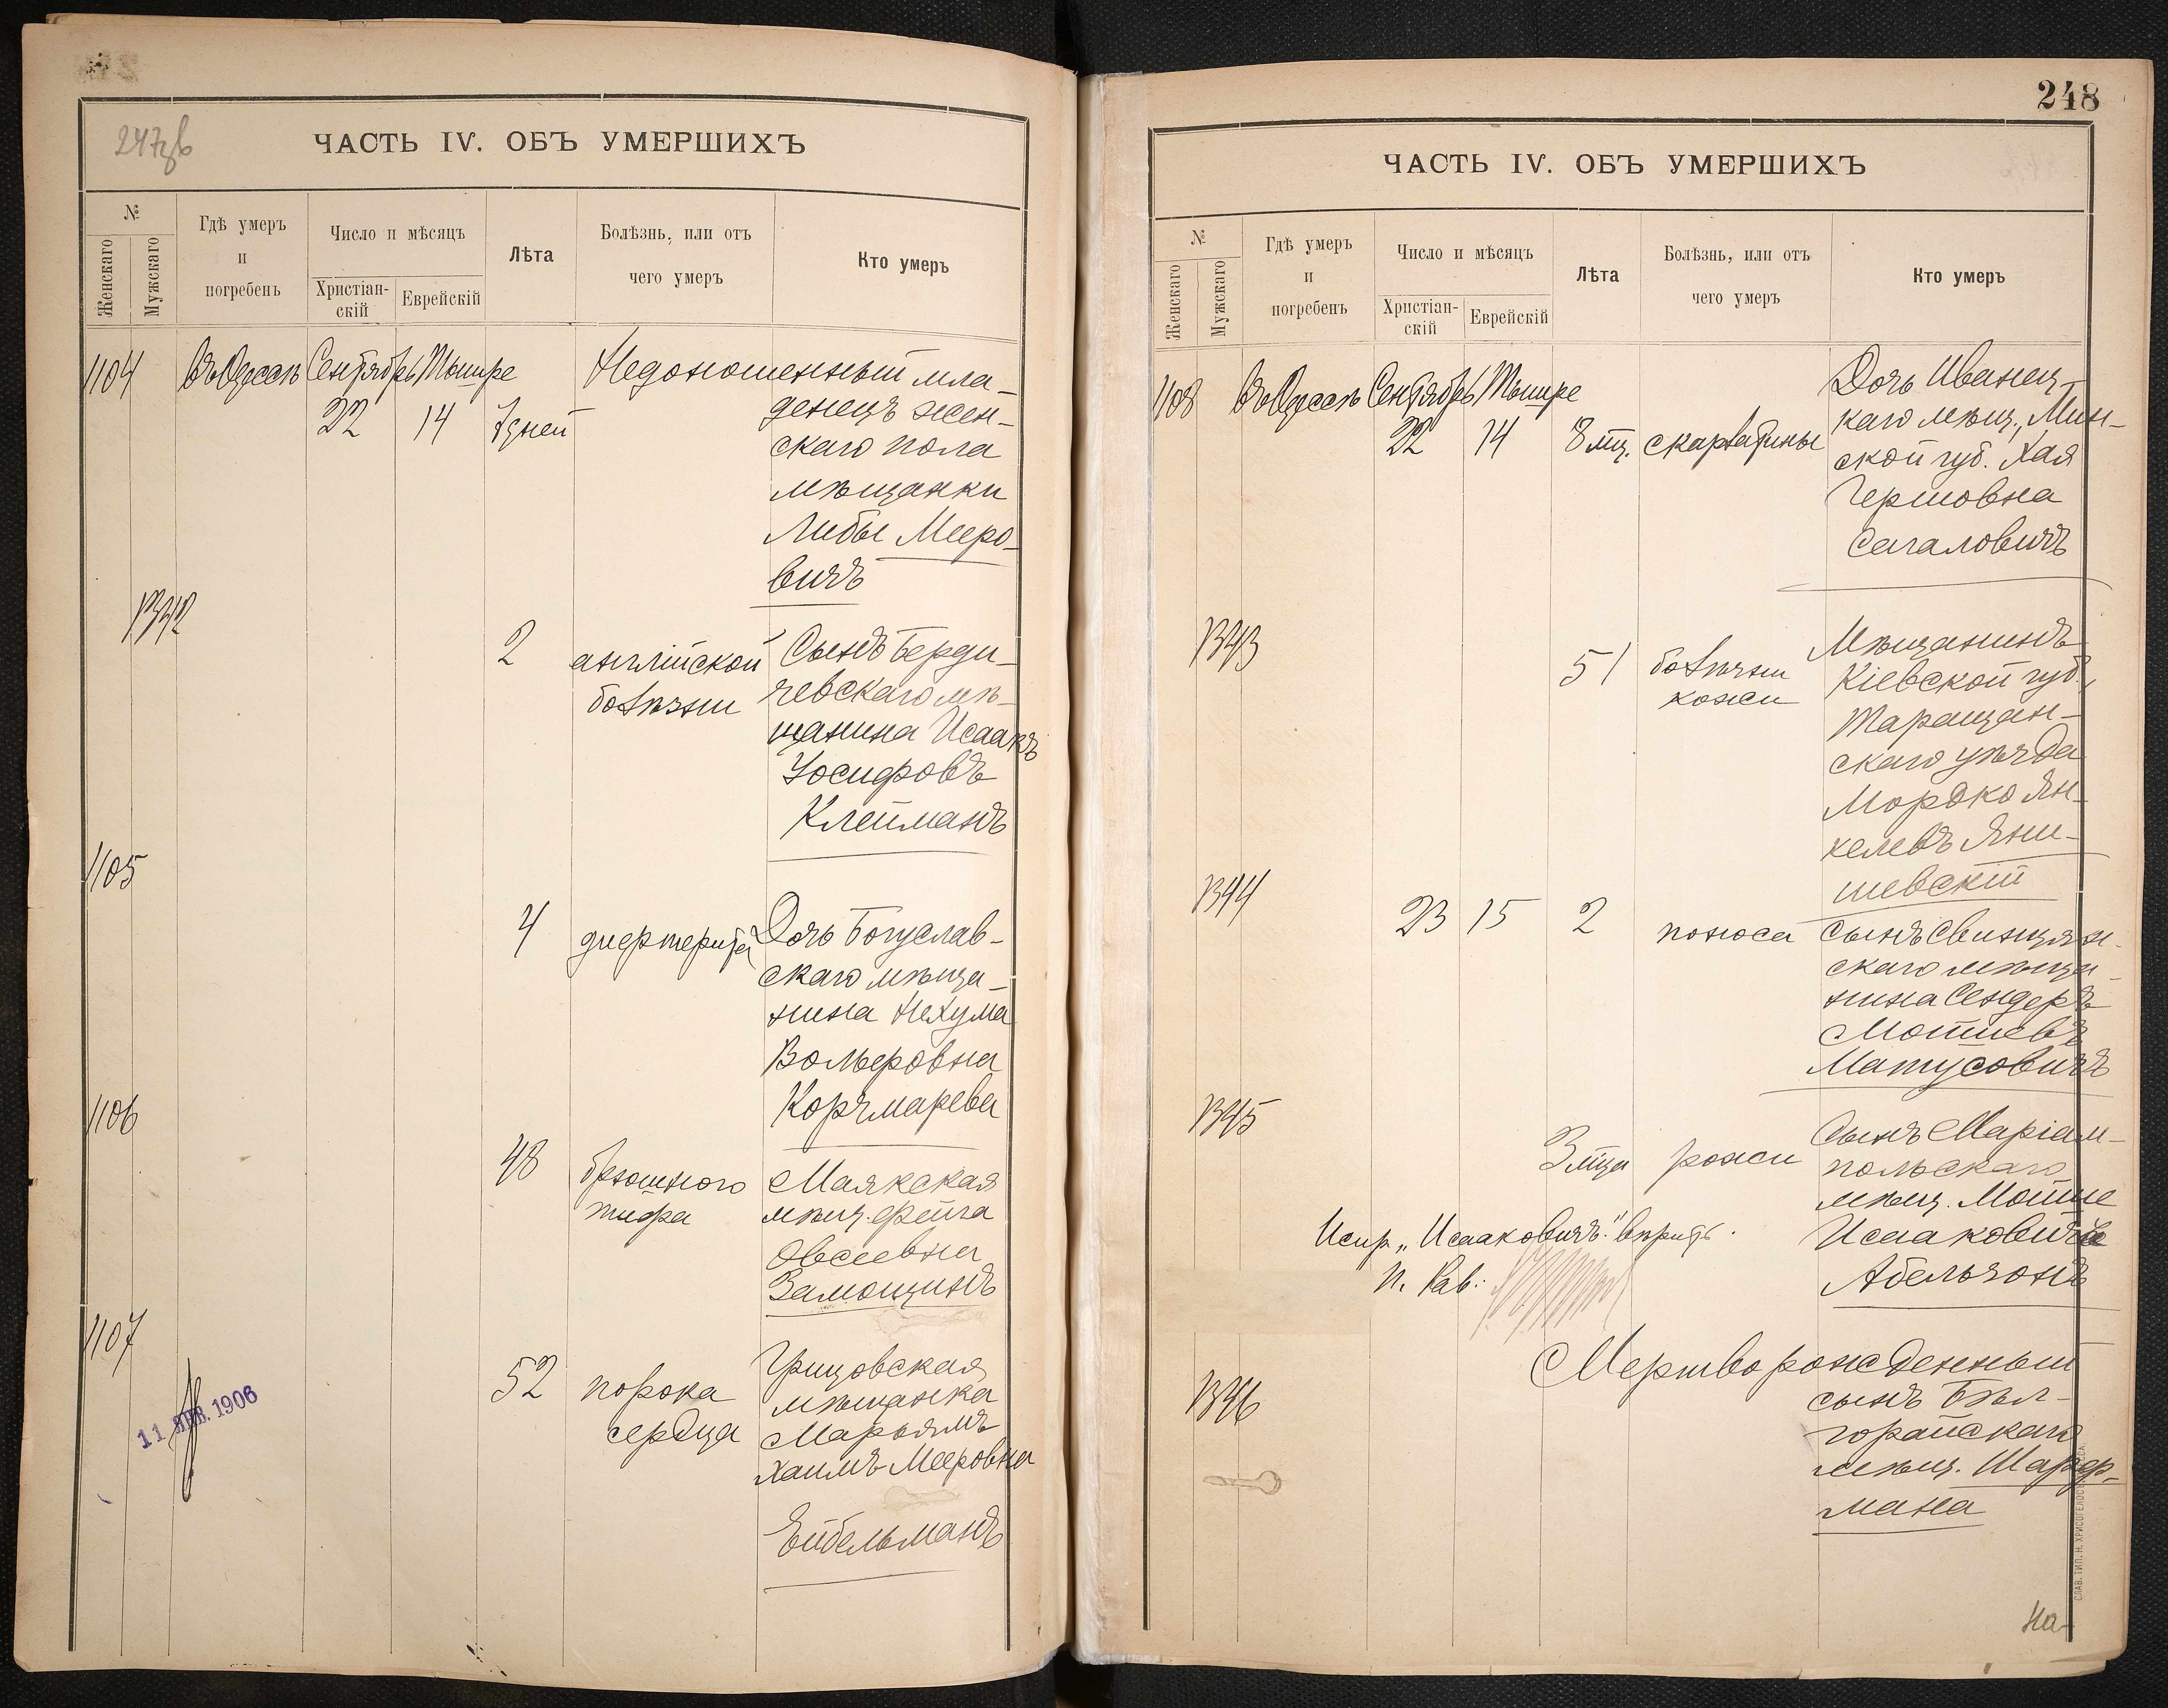 247об
ЧАСТЬ IV. ОБЪ УМЕРШИХЪ
№
Женскаго
Мужскаго
Гдѣ умеръ
и
погребенъ
Число и мѣсяцъ
Христіан-
скій
Еврейскій
Лѣта
Болѣзнь, или отъ
чего умеръ
Кто умеръ
1104 Въ Одессѣ Сентябрь Тышре Недоношенный мла-
22 14 7 дней денецъ жен-
скаго пола
мѣщанки
Либы Мееро-
вичъ
1342
2 англійской Сынъ Берди-
болѣзни чевскаго мѣ-
щанина Исаакъ
Іосифовъ
Клейманъ
1105
4 дифтерита Дочь Богуслав-
скаго мѣща-
нина Нехума
Вольфовна
Корчмарева
1106
48 брюшного Маякская
тифа мѣщ. Фейга
Овсеевна
Замощинъ
1107
52 порока Грицовская
сердца мѣщанка
Марьямъ
Хаимъ-Мееровна
Ейбельманъ
11 ЯНВ. 1906
248
ЧАСТЬ IV. ОБЪ УМЕРШИХЪ
№
Женскаго
Мужскаго
Гдѣ умеръ
и
погребенъ
Число и мѣсяцъ
Христіан-
скій
Еврейскій
Лѣта
Болѣзнь, или отъ
чего умеръ
Кто умеръ
1108 Въ Одессѣ Сентябрь Тышре Дочь Иванец-
22 14 8 мц. скарлатины каго мѣщ., Мин-
ской губ. Хая
Гершовна
Сагаловичъ
1343
51 болѣзни Мѣщанинъ
кожи Кіевской губ.,
Таращан-
скаго уѣзда
Мордко Ян-
келевъ Яни-
шевскій
1344
23 15 2 поноса Сынъ Свинцян-
скаго мѣща-
нина Сендеръ
Мотиевъ
Матусовичъ
1345
3 мца рожи Сынъ Маріам-
польскаго
мѣщ. Мойше
Испр. „Исааковичъ." вѣрить. Исааковичъ
И. Рав. Абельзонъ
1346
Мертворожденный
сынъ Бѣл-
горайскаго
мѣщ. Шарфер-
мана
На-
СЛАВ. ТИП. Н. ХРИСОГЕЛОСЪ